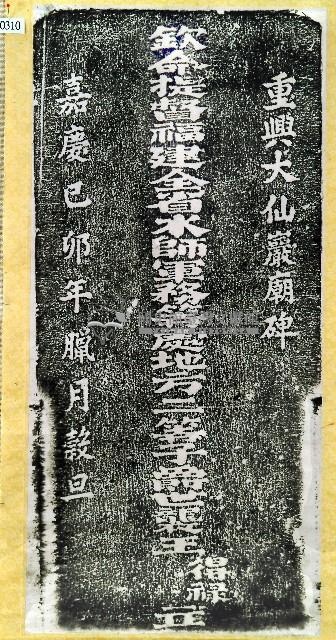 重興大仙巖廟碑
欽命提督福建全省水師軍務統處地方三等子爵世襲王得祿立
嘉慶己卯年臘月穀旦
0310